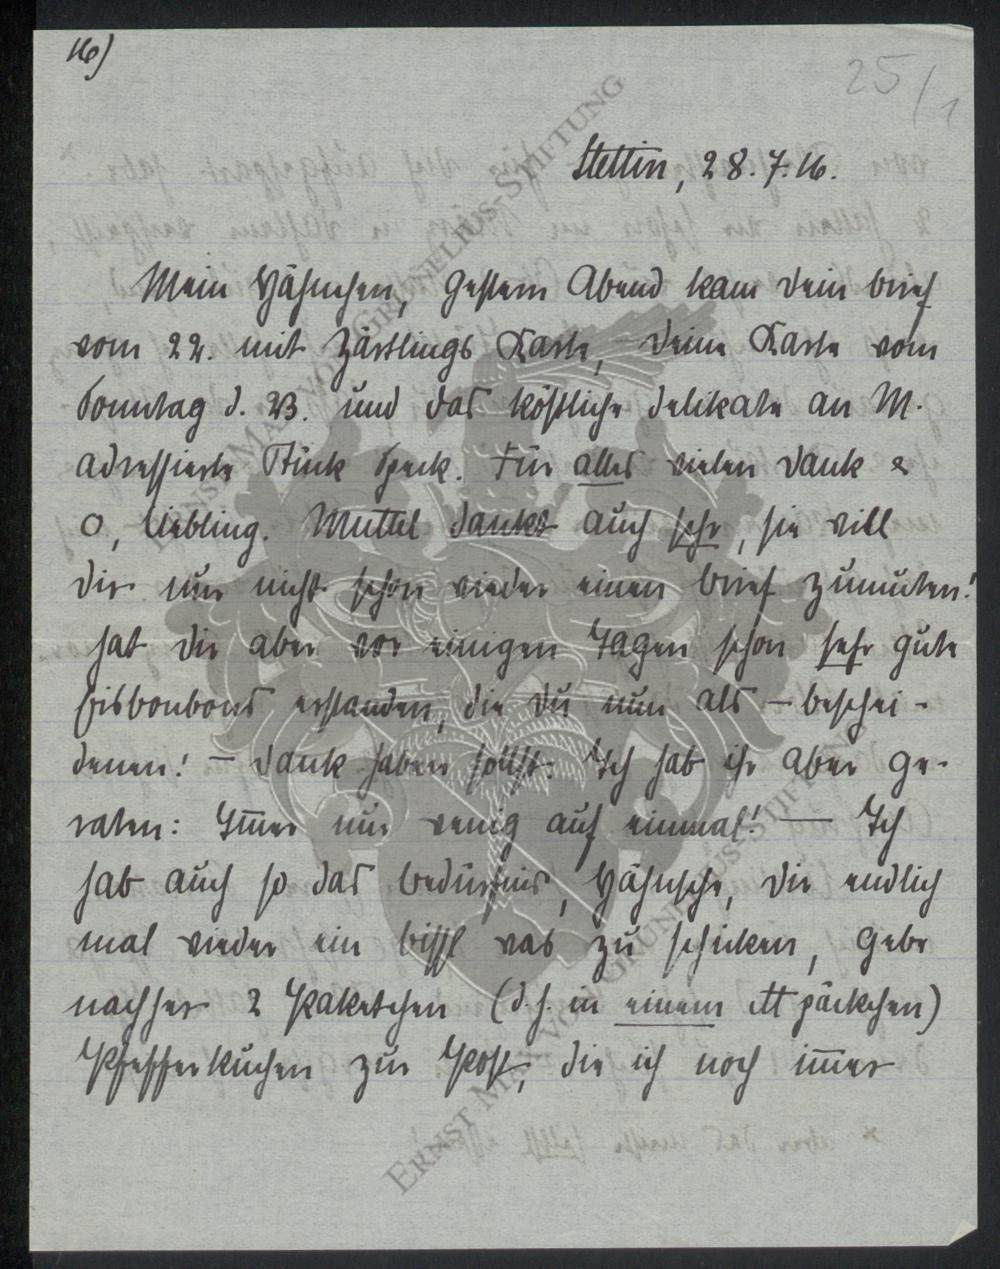 16)
25/1
Stettin, 28.7.16.
Mein Hähnchen, gestern Abend kam dein brief
vom 22. mit Zärtlings Karte, deine Karte vom
Sonntag d. 23. und das köstliche delikate an M.
adressierte Stück Speck. Für alles vielen dank &
O, liebling. Muttel dankt auch sehr, sie will
dir nur nicht schon wieder einen brief zumuten!
hat dir aber vor einigen Tagen schon sehr gute
Eisbonbons erstanden, die du nun als – beschei-
denen! – dank haben sollst. Ich hab ihr aber ge-
raten: Im̄er nur wenig auf einmal! — Ich
hab auch so das bedürfnis, Hähnsche, dir endlich
mal wieder ein bissl was zu schicken, gebe
nachher 2 Paketchen (d.h. in einem ℔ päckchen)
Pfefferkuchen zur Post, die ich noch im̄er
ERNST MAX VON GRUNELIUS-STIFTUNG
ERNST MAX VON GRUNELIUS-STIFTUNG